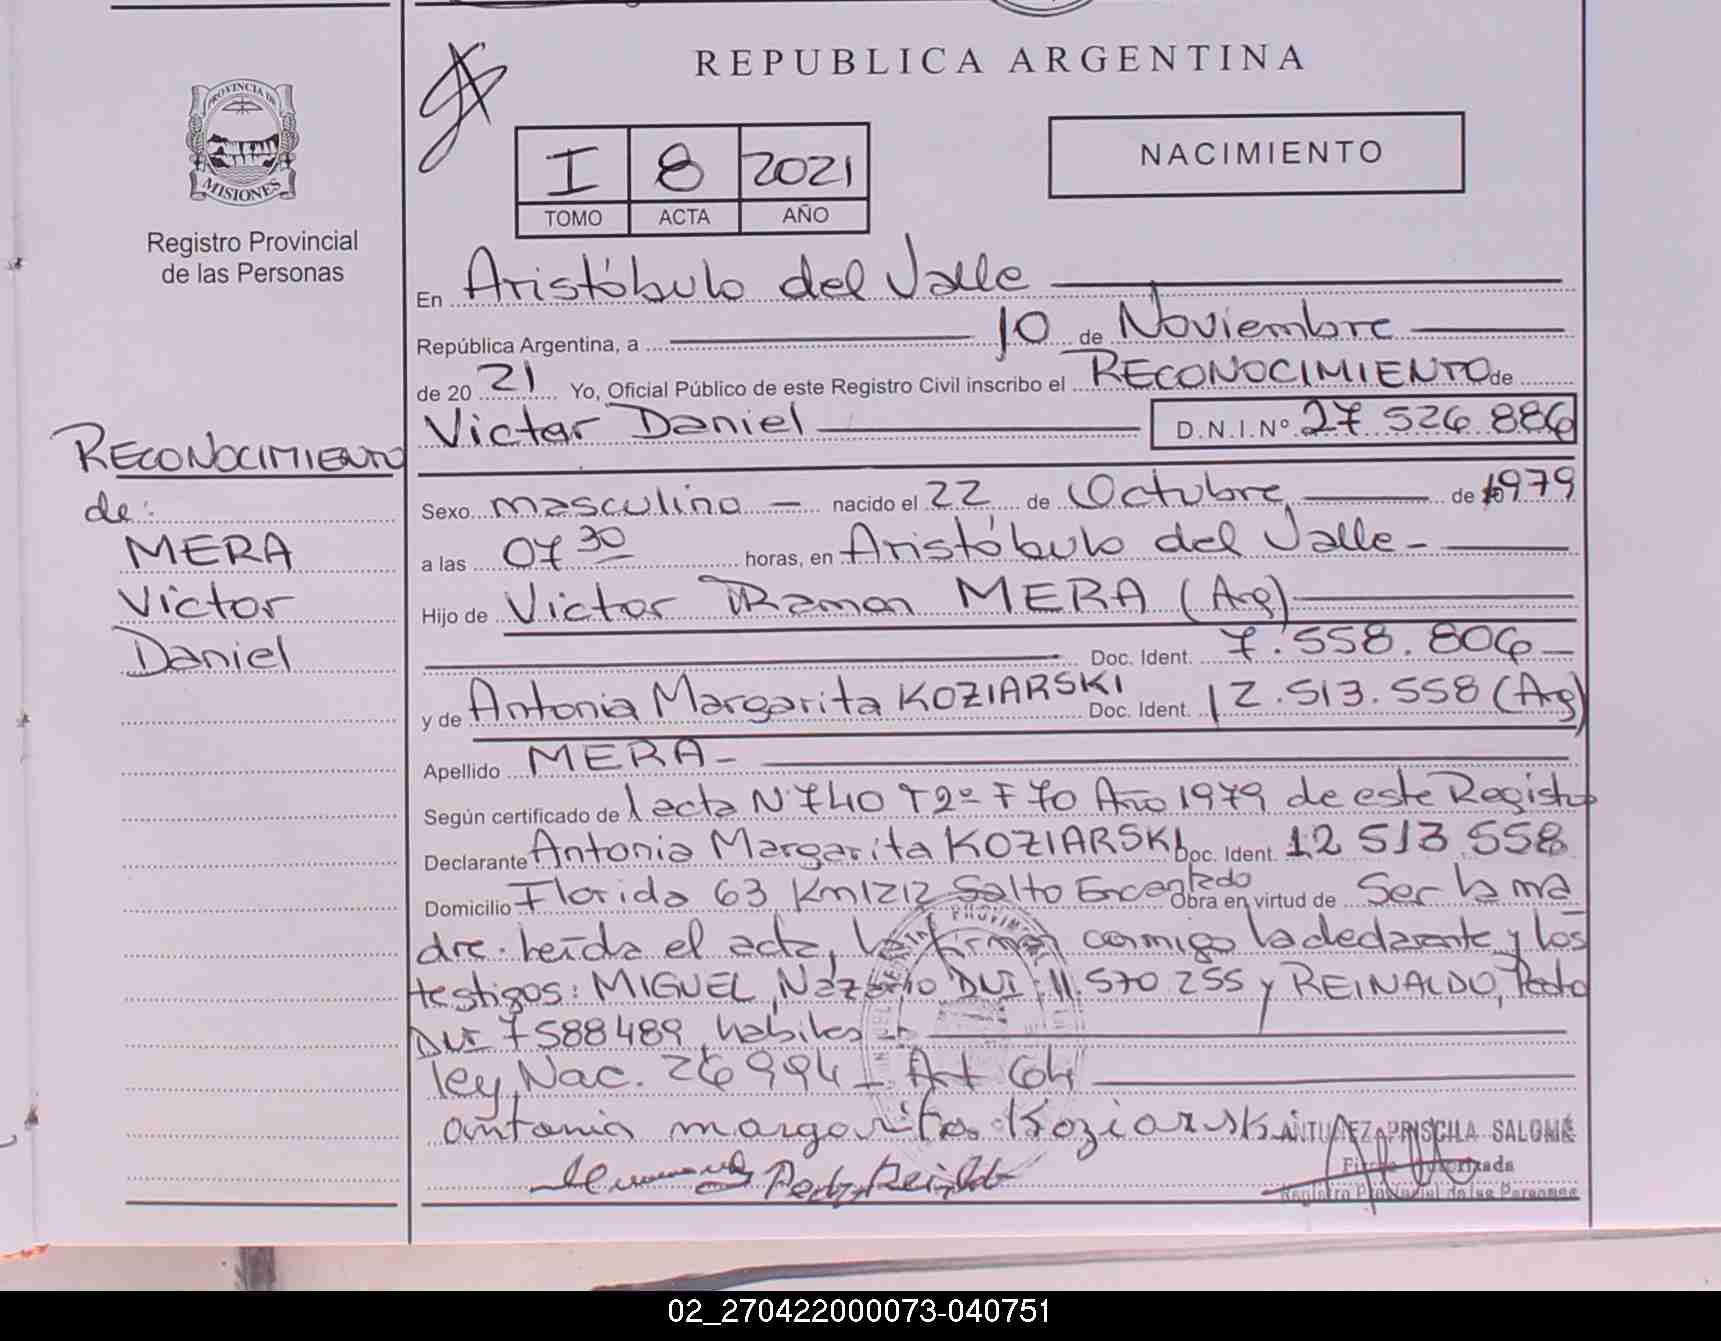 REPUBLICA ARGENTINA
PROVINCIA DE
MISIONES
Registro Provincial
de las Personas
I 8 2021
TOMO ACTA AÑO
NACIMIENTO
RECONOCIMIENTO
de:
MERA
Victor
Daniel
En Aristóbulo del Valle
República Argentina, a 10 de Noviembre
de 20 21 Yo, Oficial Público de este Registro Civil inscribo el RECONOCIMIENTO de
Victor Daniel D.N.I.Nº 27.526.886
Sexo masculino - nacido el 22 de Octubre de 1979
a las 07 30 horas, en Aristóbulo del Valle -
Hijo de Victor Ramon MERA (Arg)
Doc. Ident. 7.558.806 -
y de Antonia Margarita KOZIARSKI Doc. Ident. 12.513.558 (Arg)
Apellido MERA -
Según certificado de acta Nº 740 T2º F 70 Año 1979 de este Registro
Declarante Antonia Margarita KOZIARSKI Doc. Ident. 12 513 558
Domicilio Florida 63 Km1212 Salto Encantado Obra en virtud de Ser la ma
dre. Leída el acta, la firman conmigo la declarante y los
testigos: MIGUEL, Nazario DNI 11.570 255 y REINALDO, Pedro
DNI 7588489 habiles -
ley Nac. 26994 - Art 64
antonia margarita Koziarski
ANTUNEZ PRISCILA SALOMÉ
Firma Autorizada
Registro Provincial de las Personas
Pedro Reinaldo
02_270422000073-040751